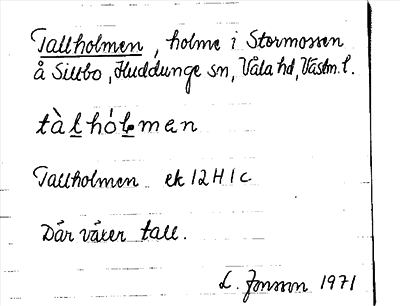 Tallholmen, holme i Stormossen
å Sillbo, Huddunge sn, Våla hd, Västm. l.
tàḻhóḻmen
Tallholmen ek 12H1c
Där växer tall.
L. Jonsson 1971